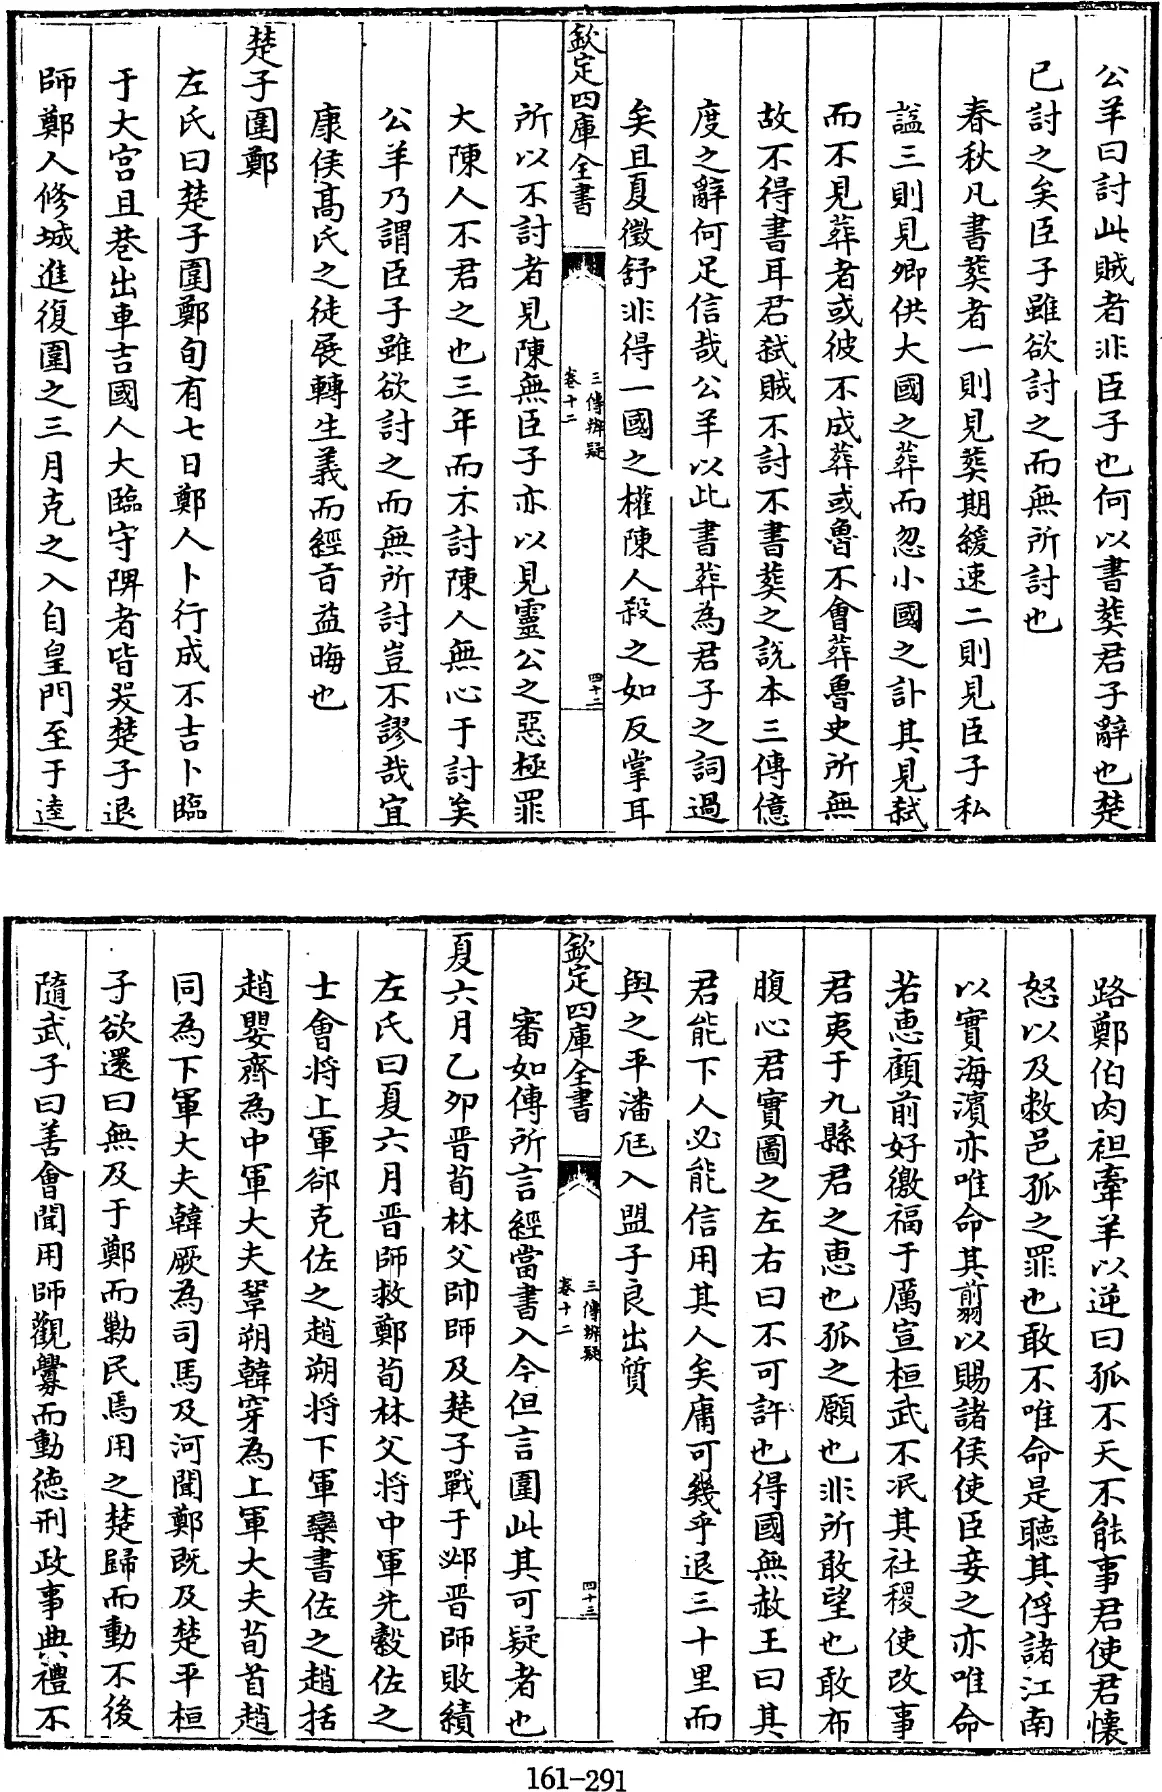 公羊曰討此賊者非臣子也何以書葬君子辭也楚
已討之矣臣子雖欲討之而無所討也
春秋凡書葬者一則見葬期緩速二則見臣子私
諡三則見卿供大國之葬而忽小國之訃其見弑
而不見葬者或彼不成葬或魯不會葬魯史所無
故不得書耳君弑賊不討不書葬之說本三傳億
度之辭何足信哉公羊以此書葬為君子之詞過
矣且夏徵舒非得一國之權陳人殺之如反掌耳
欽定四庫全書
三傳辨疑
卷十二
四十二
所以不討者見陳無臣子亦以見靈公之惡極罪
大陳人不君之也三年而不討陳人無心于討矣
公羊乃謂臣子雖欲討之而無所討豈不謬哉宜
康侯高氏之徒展轉生義而經㫖益晦也
楚子圍鄭
左氏曰楚子圍鄭旬有七日鄭人卜行成不吉卜臨
于大宫且巷出車吉國人大臨守陴者皆哭楚子退
師鄭人修城進復圍之三月克之入自皇門至于逵
路鄭伯肉袒牽羊以逆曰孤不天不能事君使君懷
怒以及敝邑孤之罪也敢不唯命是聽其俘諸江南
以實海濱亦唯命其翦以賜諸侯使臣妾之亦唯命
若惠顧前好徼福于厲宣桓武不泯其社稷使改事
君夷于九縣君之惠也孤之願也非所敢望也敢布
腹心君實圖之左右曰不可許也得國無赦王曰其
君能下人必能信用其人矣庸可幾乎退三十里而
與之平潘尫入盟子良出質
欽定四庫全書
三傳辨疑
卷十二
四十三
審如傳所言經當書入今但言圍此其可疑者也
夏六月乙卯晉荀林父帥師及楚子戰于邲晉師敗績
左氏曰夏六月晉師救鄭荀林父將中軍先縠佐之
士會將上軍郤克佐之趙朔將下軍欒書佐之趙括
趙嬰齊為中軍大夫鞏朔韓穿為上軍大夫荀首趙
同為下軍大夫韓厥為司馬及河聞鄭既及楚平桓
子欲還曰無及于鄭而勦民焉用之楚歸而動不後
隨武子曰善會聞用師觀釁而動德刑政事典禮不
161-291